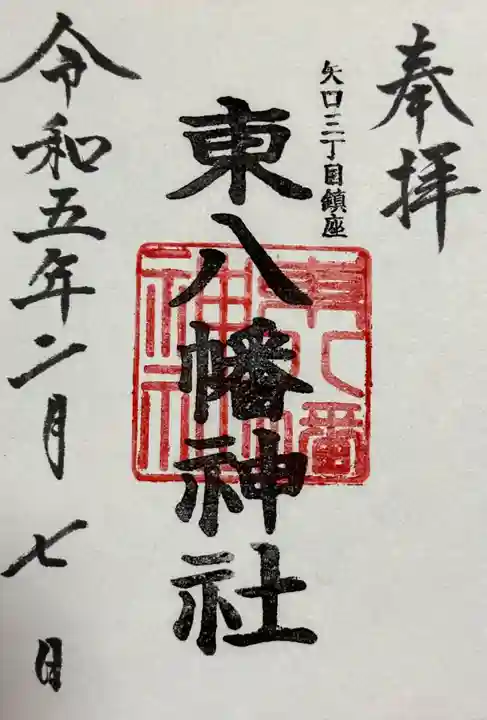 奉拝
矢口三丁目鎮座
東八幡神社
東八幡
神社
令和五年二月七日